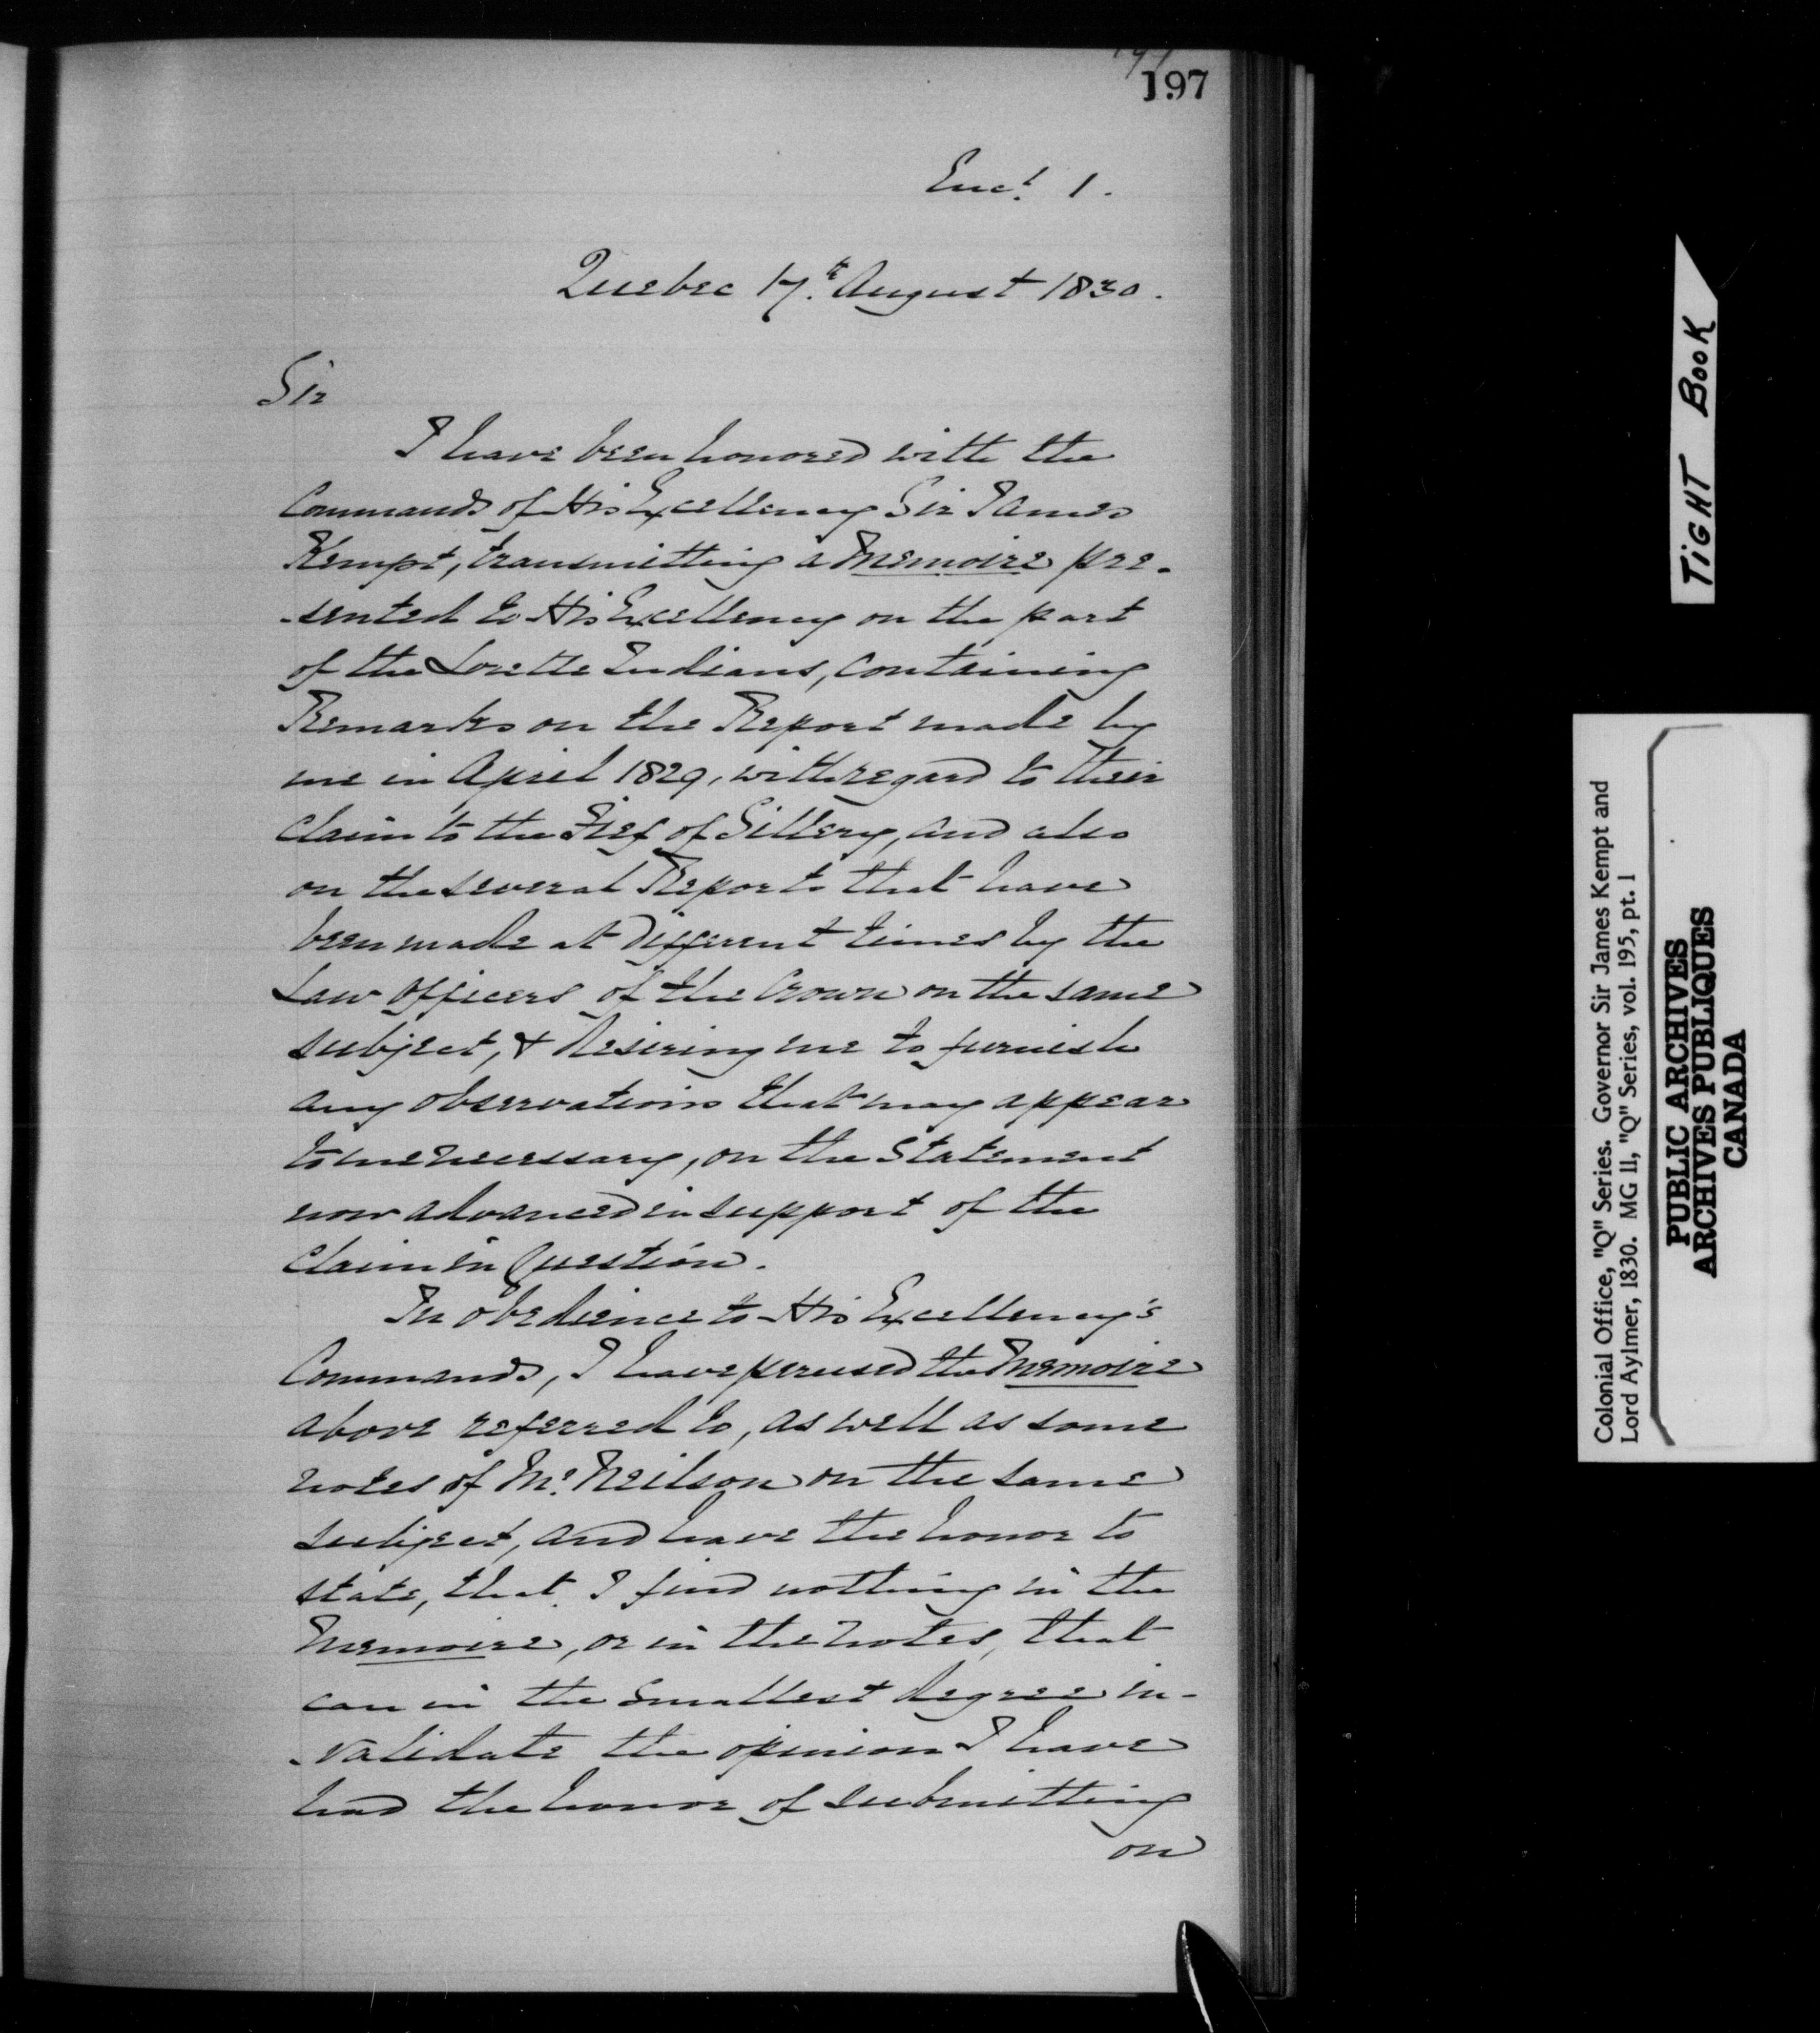 197
Encl. 1.
Quebec 17th August 1830.
Sir
I have been honored with the
Commands of His Excellency Sir James
Kempt, transmitting a Memoire pre-
-sented to His Excellency on the part
of the Lorette Indians, containing
Remarks on the Report made by
me in April 1829, with regard to their
claim to the Fief of Sillery, and also
on the several Reports that have
been made at different times by the
Law officers of the Crown on the same
subject, & desiring me to furnish
any observations that may appear
to me necessary, on the Statement
now advanced in support of the
claim in Question.
In obedience to His Excellency's
Commands, I have perused the Memoire
above referred to, as well as some
notes of Mr. Neilson on the same
subject, and have the honor to
state, that I find nothing in the
Memoire, or in the notes, that
can in the smallest degree in-
-validate the opinion I have
had the honor of submitting
on
TIGHT BOOK
Colonial Office, "Q" Series. Governor Sir James Kempt and
Lord Aylmer, 1830. MG 11, "Q" Series, vol. 195, pt. 1
PUBLIC ARCHIVES
ARCHIVES PUBLIQUES
CANADA